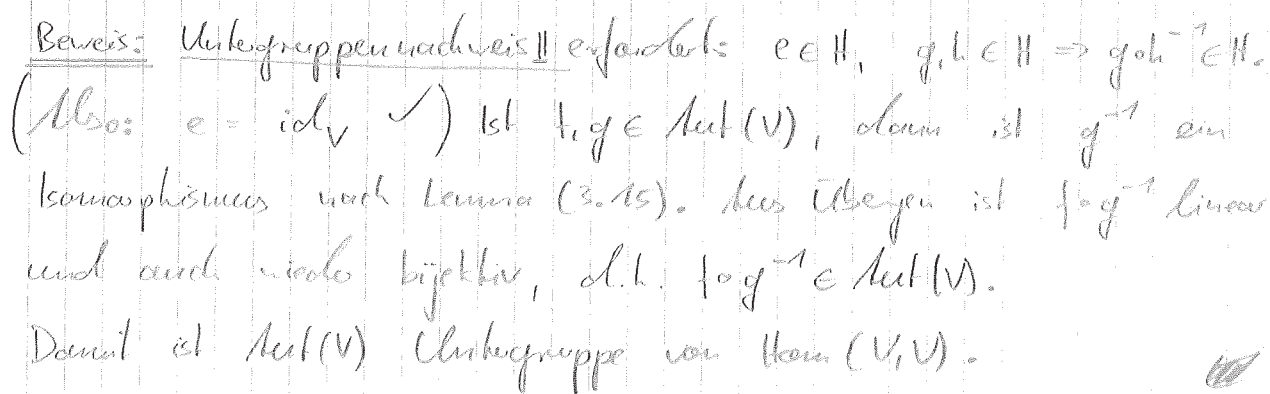 Beweis: Untergruppennachweis II erfordert: e ∈ H, g,h ∈ H => g∘h⁻¹ ∈ H.
(Also: e = id_V ✓) Ist f,g ∈ Aut(V), dann ist g⁻¹ ein
Isomorphismus nach Lemma (3.15). Aus Übungen ist f∘g⁻¹ linear
und auch wieder bijektiv, d.h. f∘g⁻¹ ∈ Aut(V).
Damit ist Aut(V) Untergruppe von Hom(V,V).